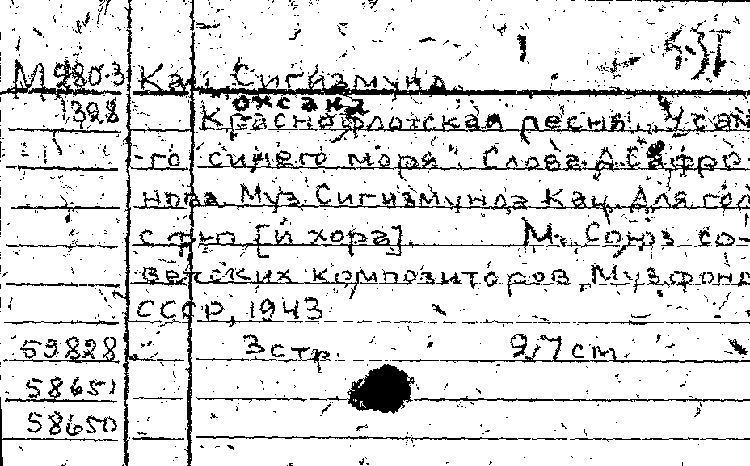 5-37
М 980-3 Кац, Сигизмунд.
1328 Краснофлотская песня. "У сам
го синего моря". Слова А. Сафро-
нова. Муз. Сигизмунда Кац. Для гол
с ф-п [и хора]. М., Союз со-
ветских композиторов, Музфонд
СССР, 1943
59828 3 стр. 27 cm.
58651
58650